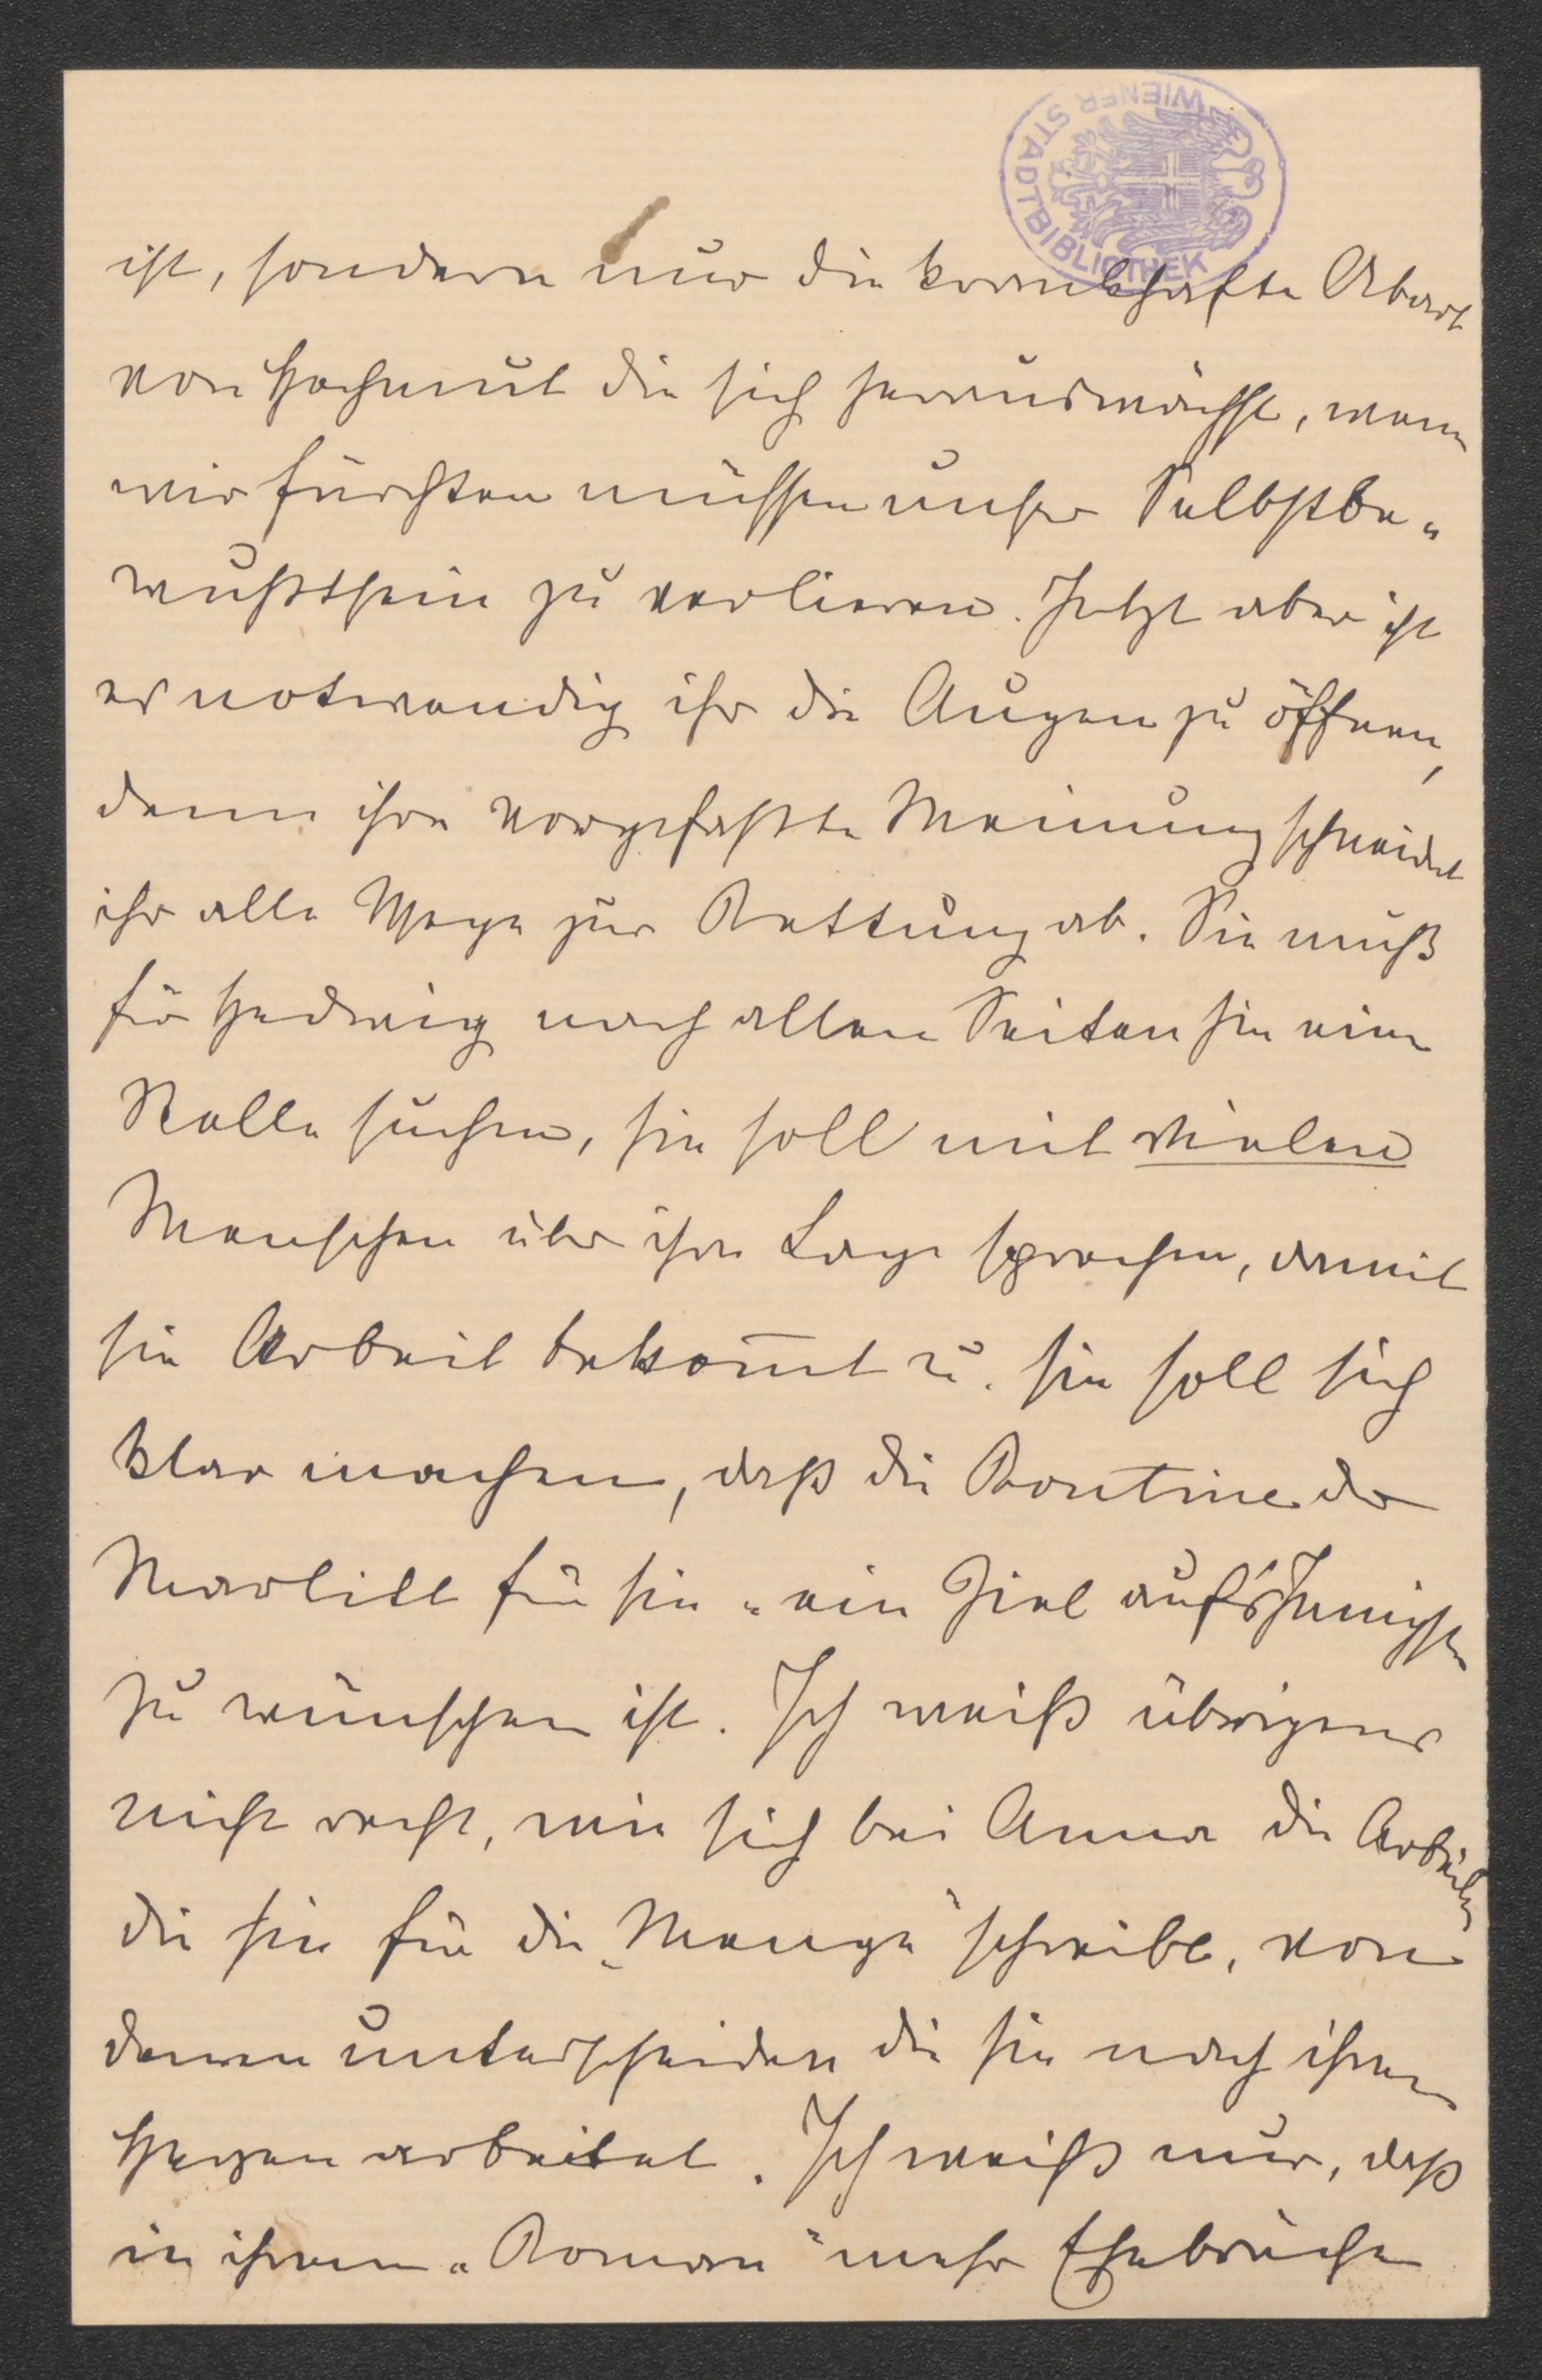 WIENER STADTBIBLIOTHEK
ist, sondern nur die krankhafte Abart
von Hochmut die sich herauswächst, wenn
wir fürchten müssen unser Selbstbe-
wußtsein zu verlieren. Jetzt aber ist
es notwendig ihr die Augen zu öffnen,
denn ihre vorgefaßte Meinung schneidet
ihr alle Wege zur Rettung ab. Sie muß
für Hedwig nach allen Seiten hin eine
Stelle suchen, sie soll mit vielen
Menschen über ihre Lage sprechen, damit
sie Arbeit bekom̄t u. sie soll sich
klar machen, daß die Routine der
Marlitt für sie "ein Ziel auf's Innigste
zu wünschen ist. Ich weiß übrigens
nicht recht, wie sich bei Anna die Arbeiten
die sie für die „Menge" schreibt, von
denen unterscheiden die sie nach ihrem
Herzen arbeitet. Ich weiß nur, daß
in ihrem „Roman" mehr Ehebrüche